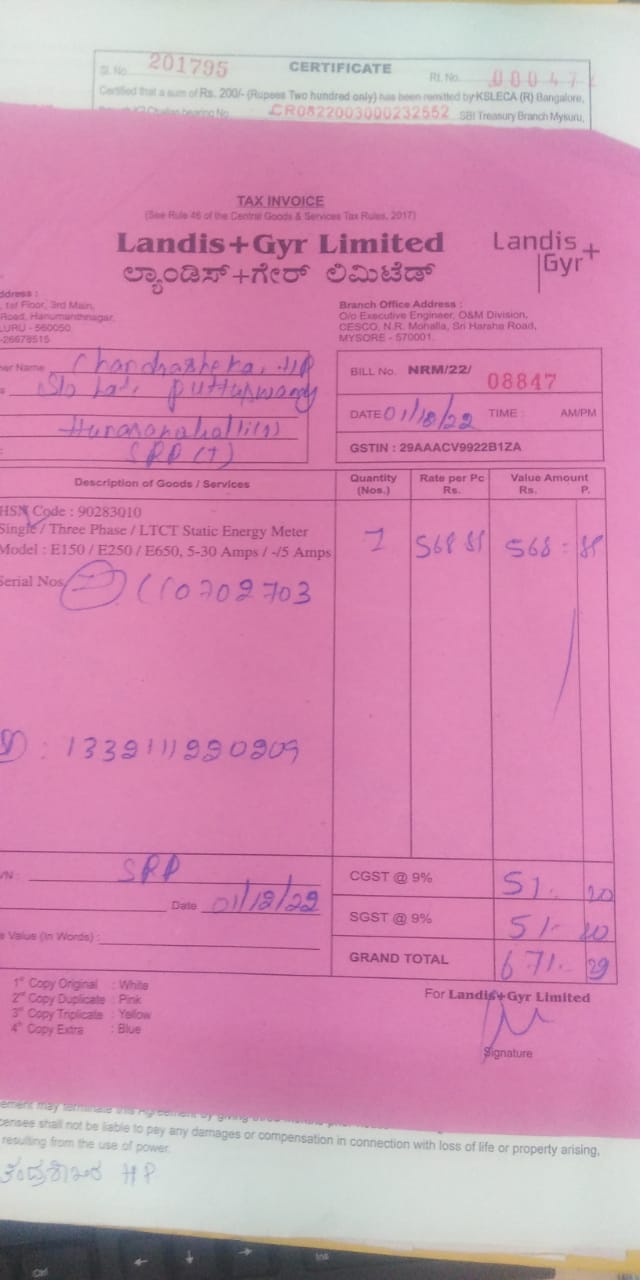 Sl. No. 201795 CERTIFICATE Rt. No. 00047
Certified that a sum of Rs. 200/- (Rupees Two hundred only) has been remitted by KSLECA (R) Bangalore,
CR0822003000232552 SBI Treasury Branch Mysuru,
TAX INVOICE
(See Rule 46 of the Central Goods & Services Tax Rules, 2017)
Landis+Gyr Limited
ಲ್ಯಾಂಡಿಸ್+ಗೇರ್ ಲಿಮಿಟೆಡ್
Landis
Gyr+
ddress :
, 1st Floor, 3rd Main,
Road, Hanumanthnagar,
LURU - 560050
-26678515
Branch Office Address :
O/o Executive Engineer, O&M Division,
CESCO, N.R. Mohalla, Sri Harsha Road,
MYSORE - 570001.
er Name Chandrashekar HP
S/o Late Puttaswamy
(T)
BILL No. NRM/22/ 08847
DATE 01/12/22 TIME : AM/PM
GSTIN : 29AAACV9922B1ZA
Description of Goods / Services
Quantity (Nos.)
Rate per Pc Rs.
Value Amount Rs. P.
HSN Code : 90283010
Single / Three Phase / LTCT Static Energy Meter
Model : E150 / E250 / E650, 5-30 Amps / -/5 Amps
1 568 568
Serial Nos. 110702703
: 1332111220209
SRP
CGST @ 9% 51. 20
Date 01/12/22
SGST @ 9% 51. 20
e Value (In Words) :
GRAND TOTAL 671. 29
1st Copy Original : White
2nd Copy Duplicate : Pink
3rd Copy Triplicate : Yellow
4th Copy Extra : Blue
For Landis+Gyr Limited
Signature
ement may terminate this Agreement by giving
censee shall not be liable to pay any damages or compensation in connection with loss of life or property arising,
resulting from the use of power.
ಚಂದ್ರಶೇಖರ HP
Ctrl
Ins